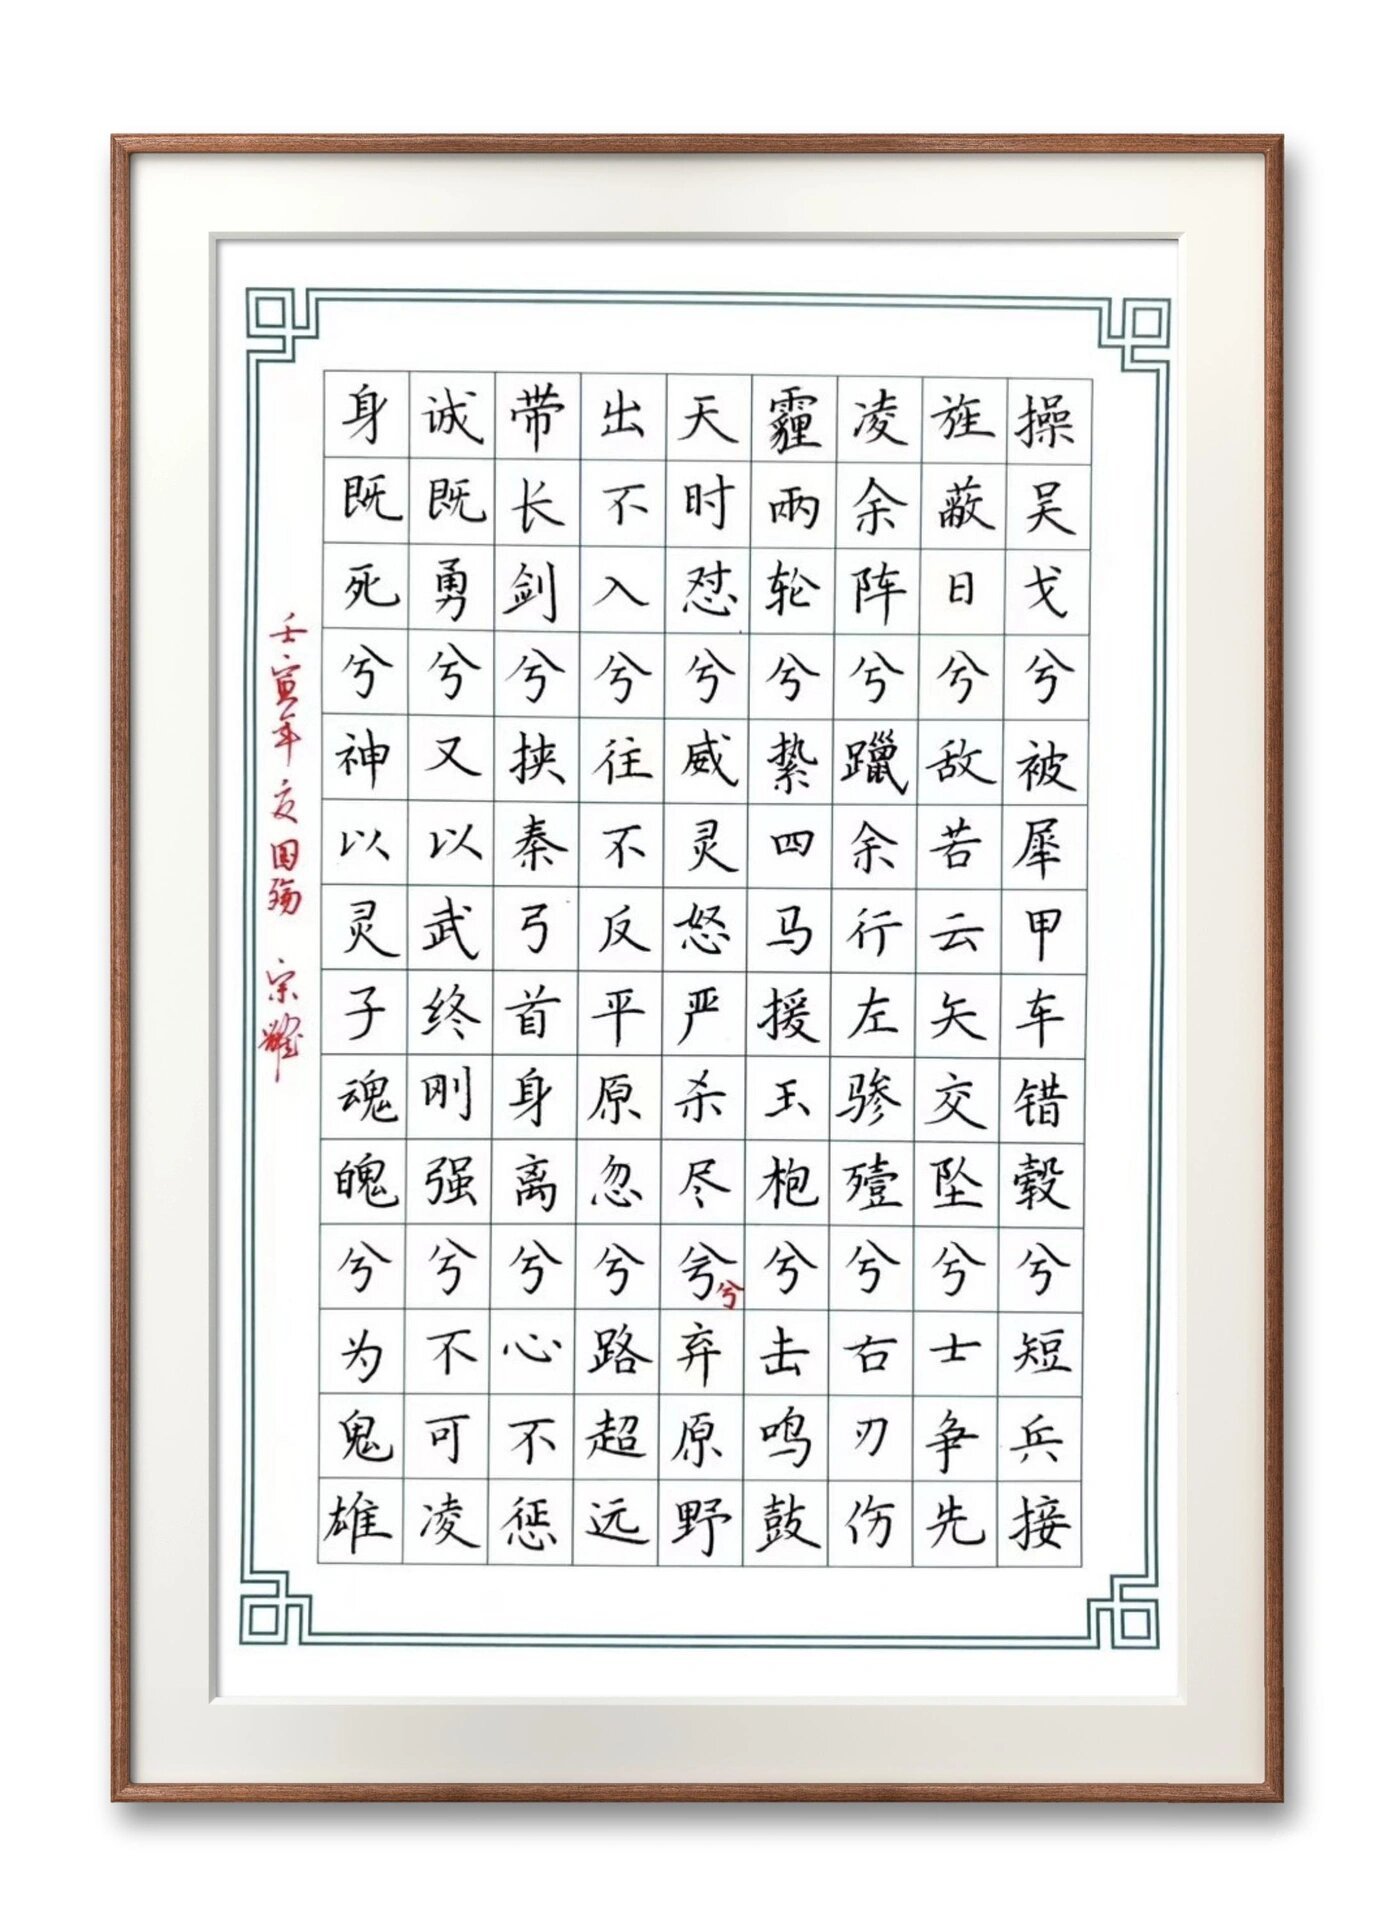 操吴戈兮被犀甲车错毂兮短兵接
旌蔽日兮敌若云矢交坠兮士争先
凌余阵兮躐余行左骖殪兮右刃伤
霾两轮兮絷四马援玉枹兮击鸣鼓
天时怼兮威灵怒严杀尽兮兮弃原野
出不入兮往不反平原忽兮路超远
带长剑兮挟秦弓首身离兮心不惩
诚既勇兮又以武终刚强兮不可凌
身既死兮神以灵子魂魄兮为鬼雄
壬寅年 国殇 宗